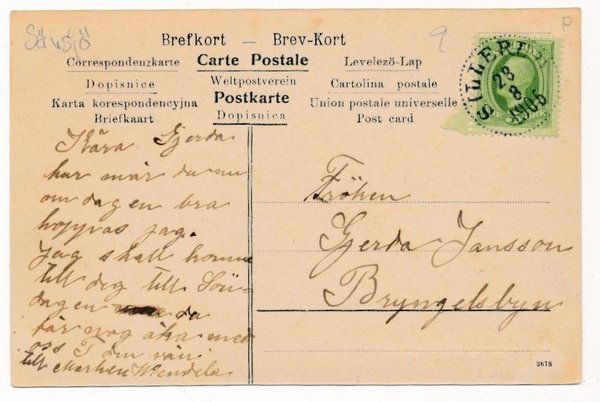 Sävsjö
9
P
Brefkort — Brev-Kort
Correspondenzkarte Carte Postale Levelező-Lap
Dopisnice Weltpostverein Cartolina postale
Karta korespondencyjna Postkarte Union postale universelle
Briefkaart Dopisnica Post card
28
8
1906
Kära Gjerda
hur mår du nu
om dagen bra
hoppvas jag.
jag skall komme
till dig till Sön-
dagen du
får nog åka med
oss T din vän
till Marken Wendela
Fröken
Gjerda Jansson
Bryngelsbyn
3678